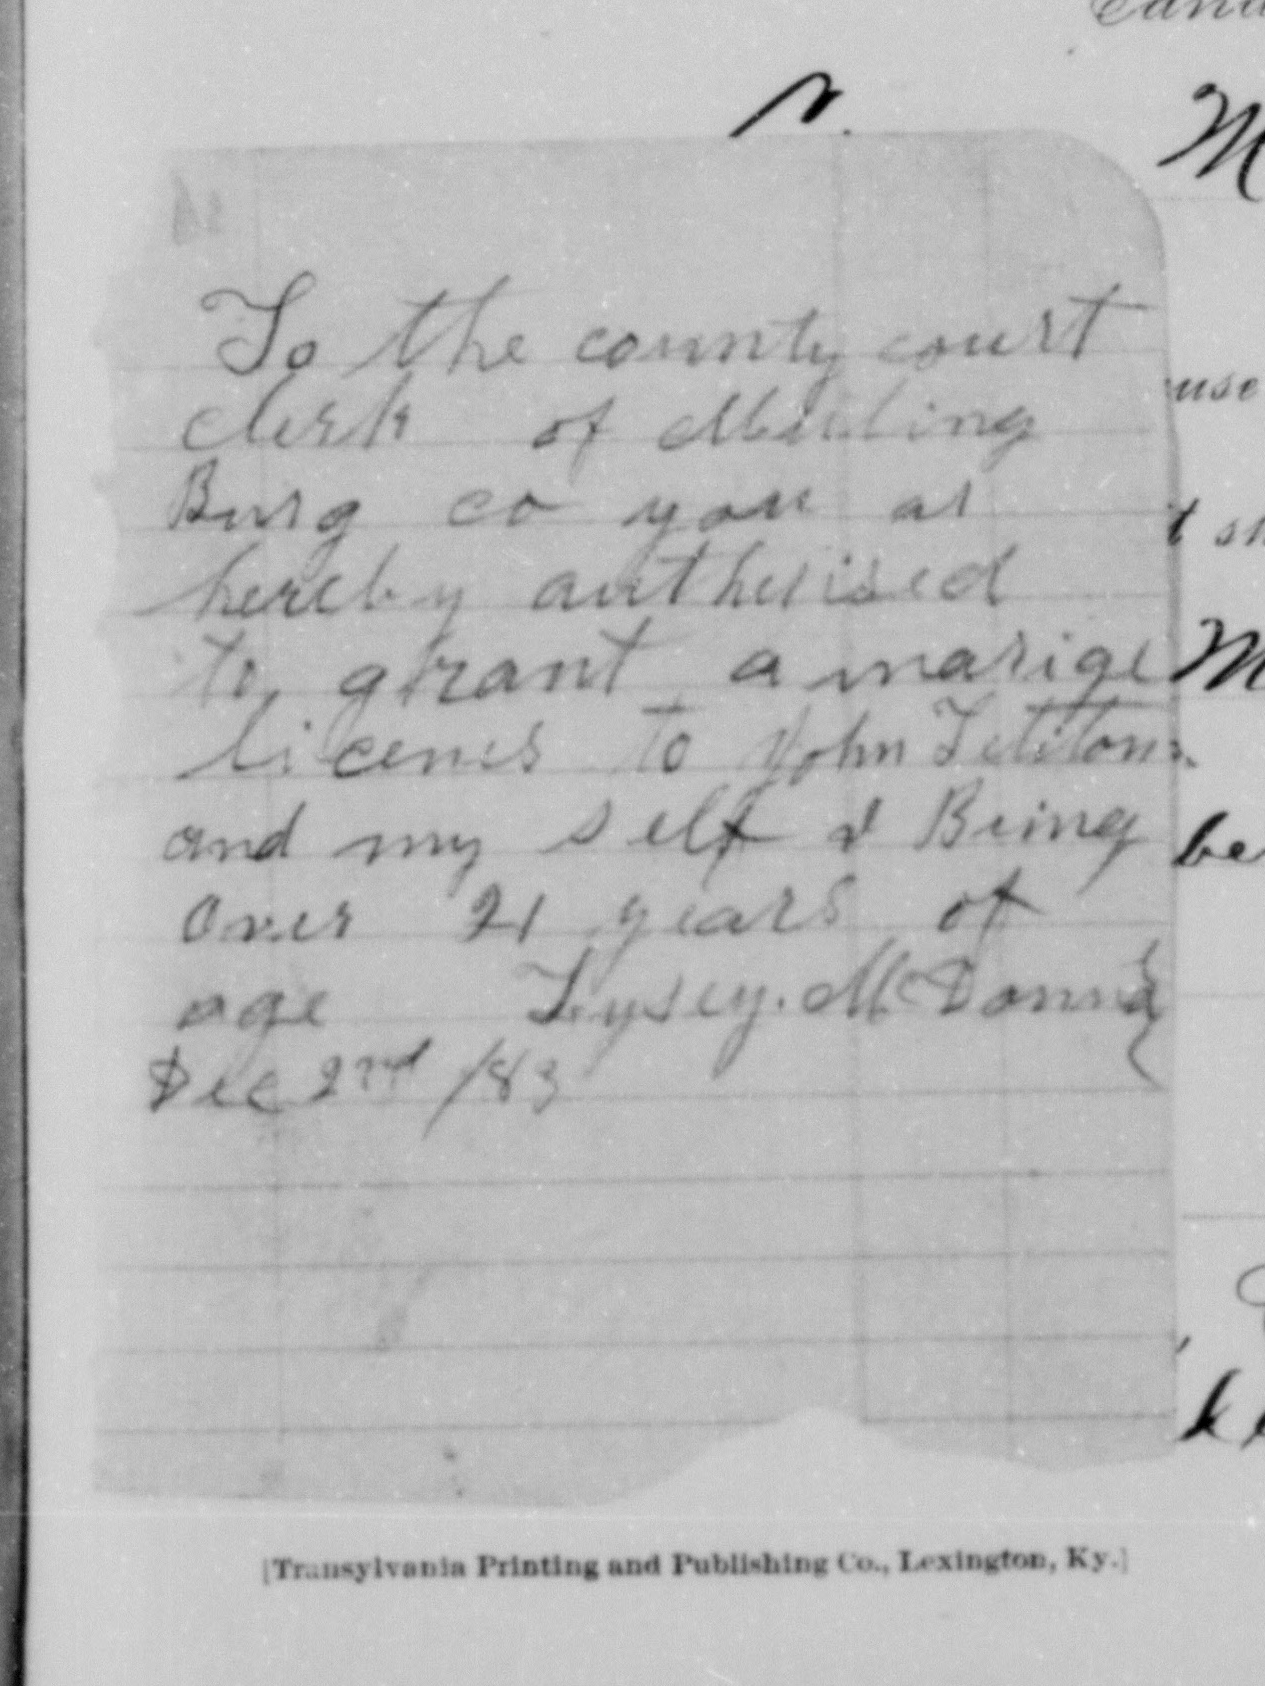 To the county court
clerk of Muling
Burg co you ar
hereby autherised
to grant a marige
licenes to John Tetiton
and my self I Being
over 21 years of
age Lysey. McDonna
Dec 2nd /83
[Transylvania Printing and Publishing Co., Lexington, Ky.]